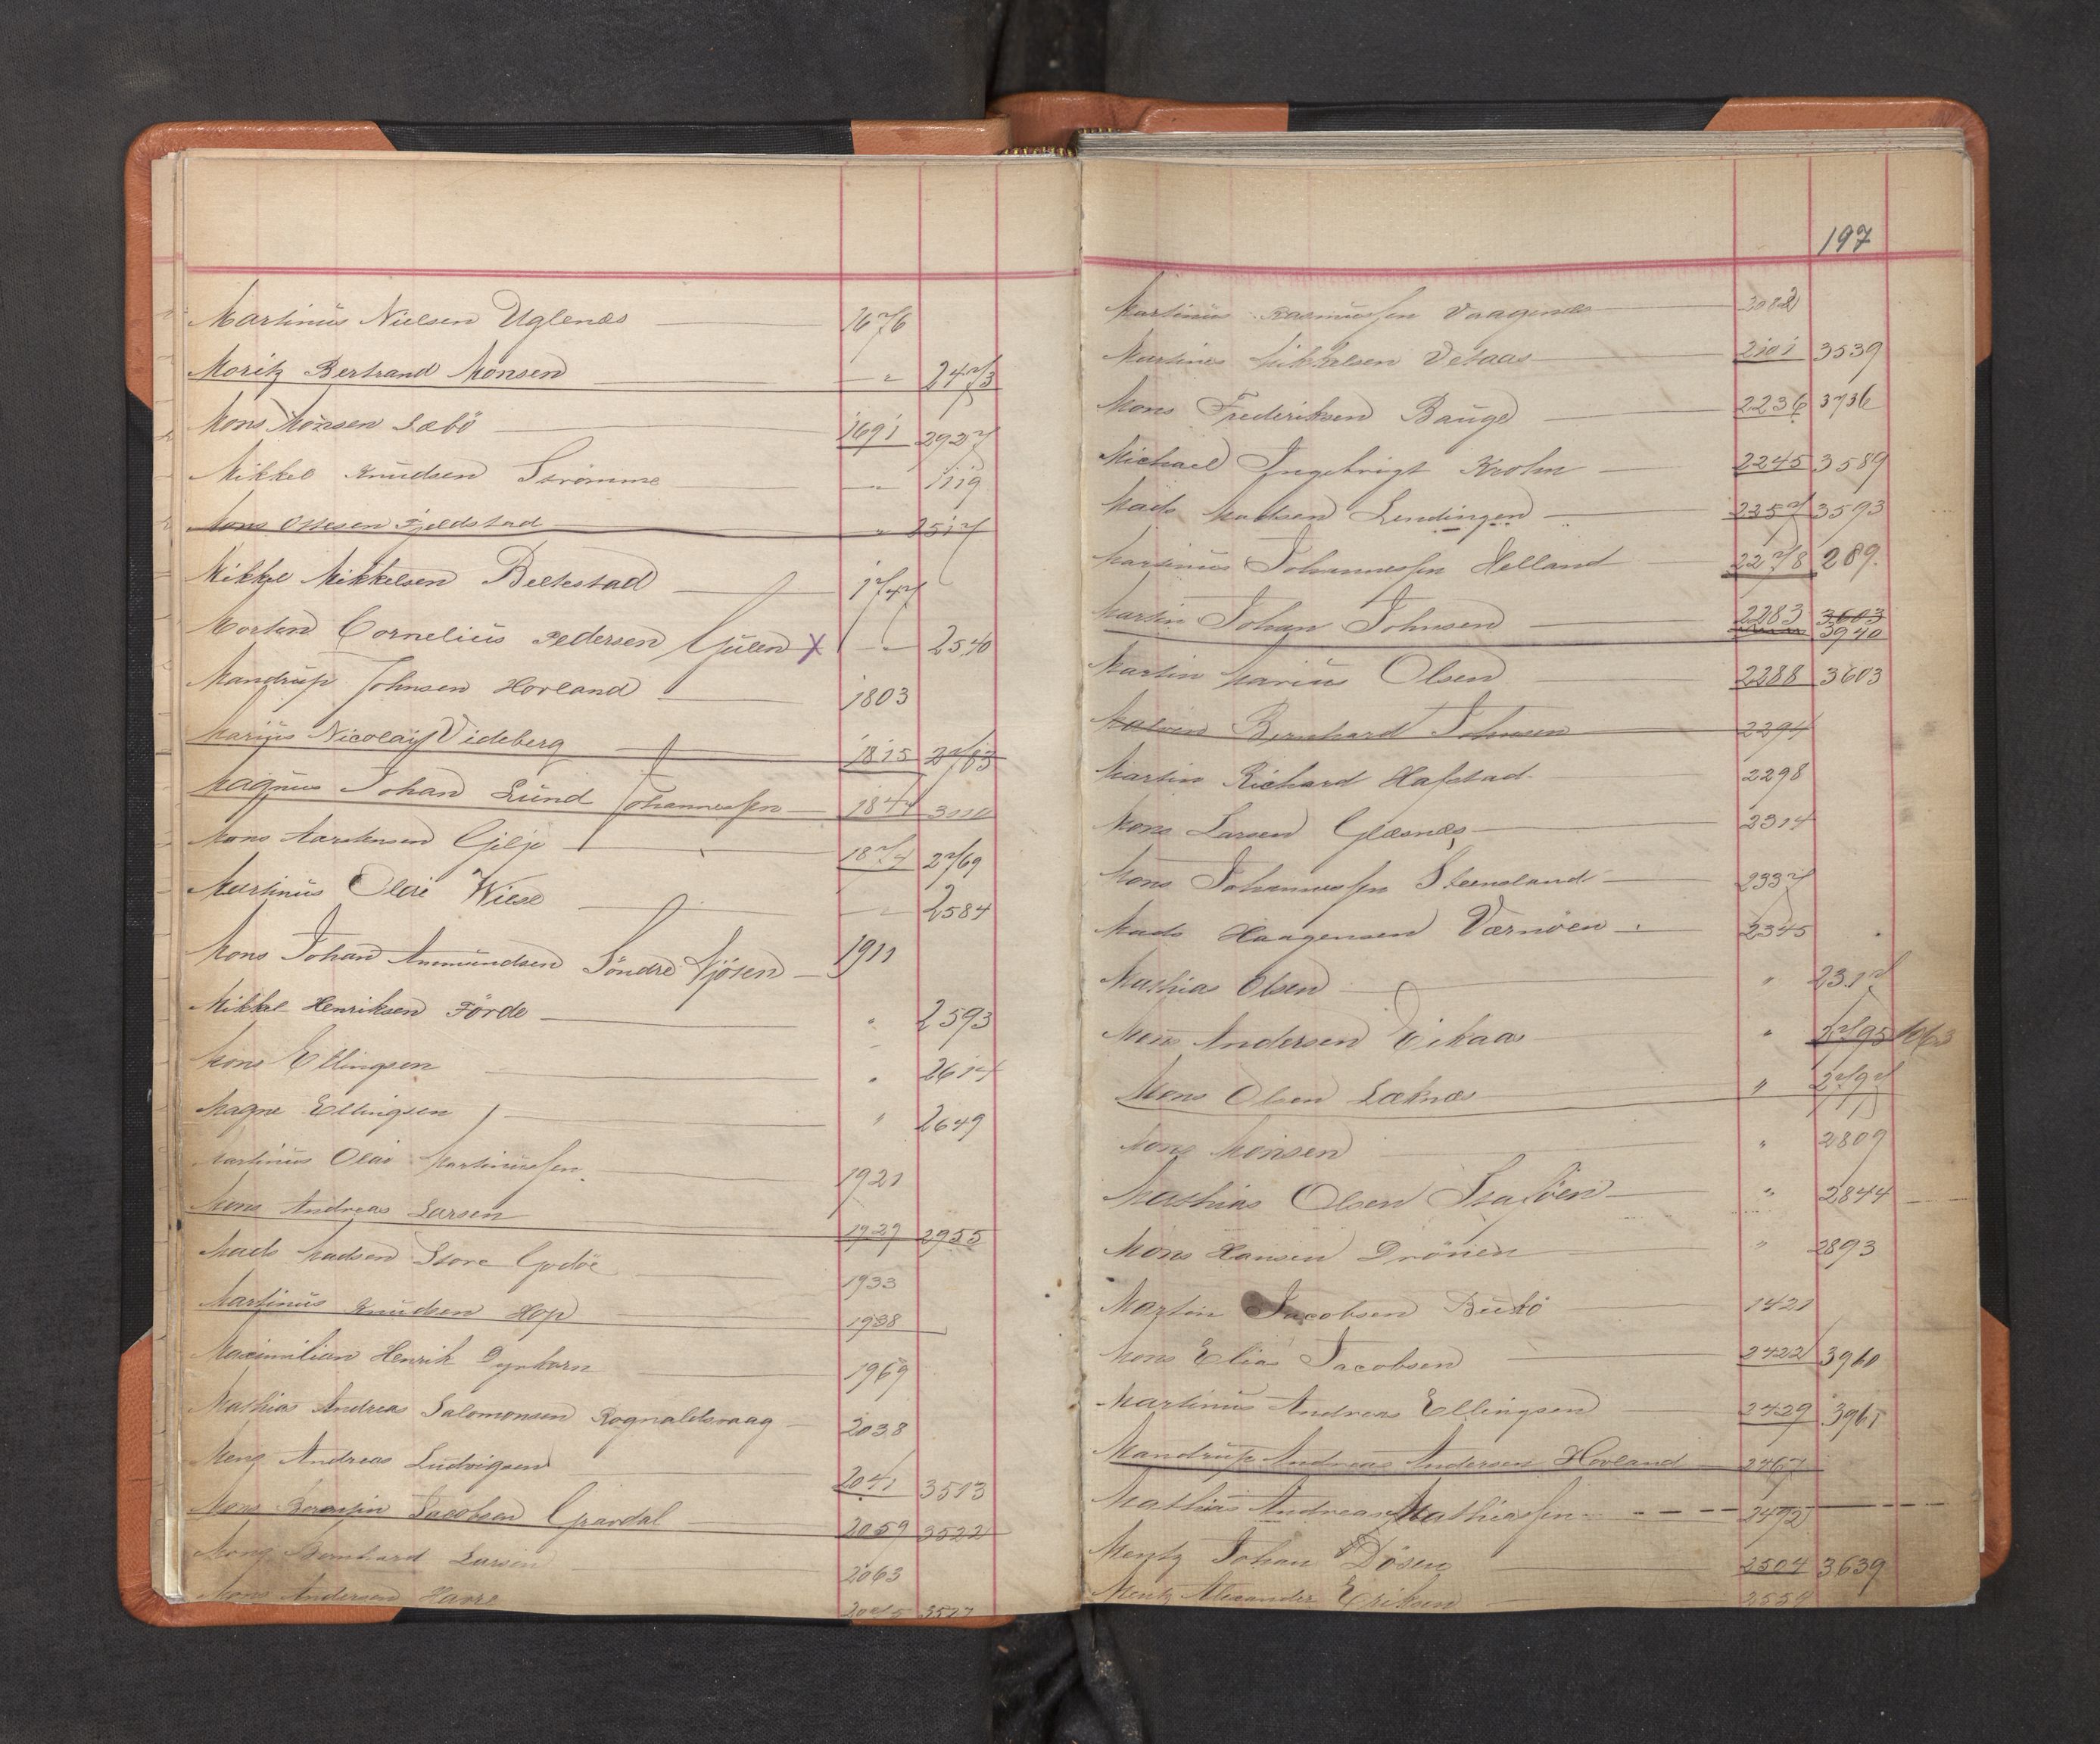 Martinus Nielsen Uglenæs 1676
Moritz Bertrand Monsen " 2473
Mons Monsen Sæbö 1691 2927
Mikkel Knudsen Strömme " 1119
Mons Ottesen Fjeldstad " 2517
Mikkel Mikkelsen Beltestad 1747
Morten Cornelius Pedersen Gulen X " 2540
Mandrup Johnsen Hovland 1803
Marius Nicolay Videberg 1815 2783
Magnus Johan Lund Johannessen 1844
Mons Aarstensen Gilje 1874 2769
Martinus Olai Wiese " 2584
Mons Johan Anmundsen Söndre Njösen 1911
Mikkel Henriksen Förde " 2593
Mons Ellingsen " 2614
Magne Ellingsen " 2649
Martinus Olai Martinussen 1921
Mons Andreas Larsen 1927 2955
Mads Madsen Store Godöe 1933
Martinus Knudsen Hop 1938
Maximilian Henrik Dynhorn 1969
Mathias Andreas Salomonsen Rognaldsvaag 2038
Meng Andreas Ludvigsen 2041 3513
Mons Jacobsen Gravdal 2059 3522
Mons Bernhard Larsen 2063
Mons Andersen Havre
197
Martinus Rasmussen Vaagenæs 2082
Martines Mikkelsen Vetaas 2101 3539
Mons Frederiksen Bauge 2236 3736
Michael Ingebrigt Krohn 2245 3589
Mads Madsen Lendingen 2257 3593
Martinus Johannessen Helland 2278 289
Martin Johan Johnsen 2283 3603
3940
Martin Marius Olsen 2288 3603
Bernhard Johnsen 2294
Martin Richard Hafstad 2298
Mons Larsen Glæsnæs 2314
Mons Johannessen Steensland 2337
Mads Haagensen Værnöen 2345
Mathias Olsen " 2317
Mons Andersen Vikaas " 2795
Mons Olsen Læknæs " 2797
Mons Monsen " 2809
Mathias Olsen " 2844
Mons Hansen Drönen " 2893
Martin Jacobsen 1421
Mons Elias Jacobsen 2422 3960
Martinus Andreas Ellingsen 2429 3961
Mandrup Andreas Andersen Hovland 2467
Mathias Andreas Mathiassen 2492
Mentz Johan Dösen 2504 3639
Mentz Alexander Eriksen 2559